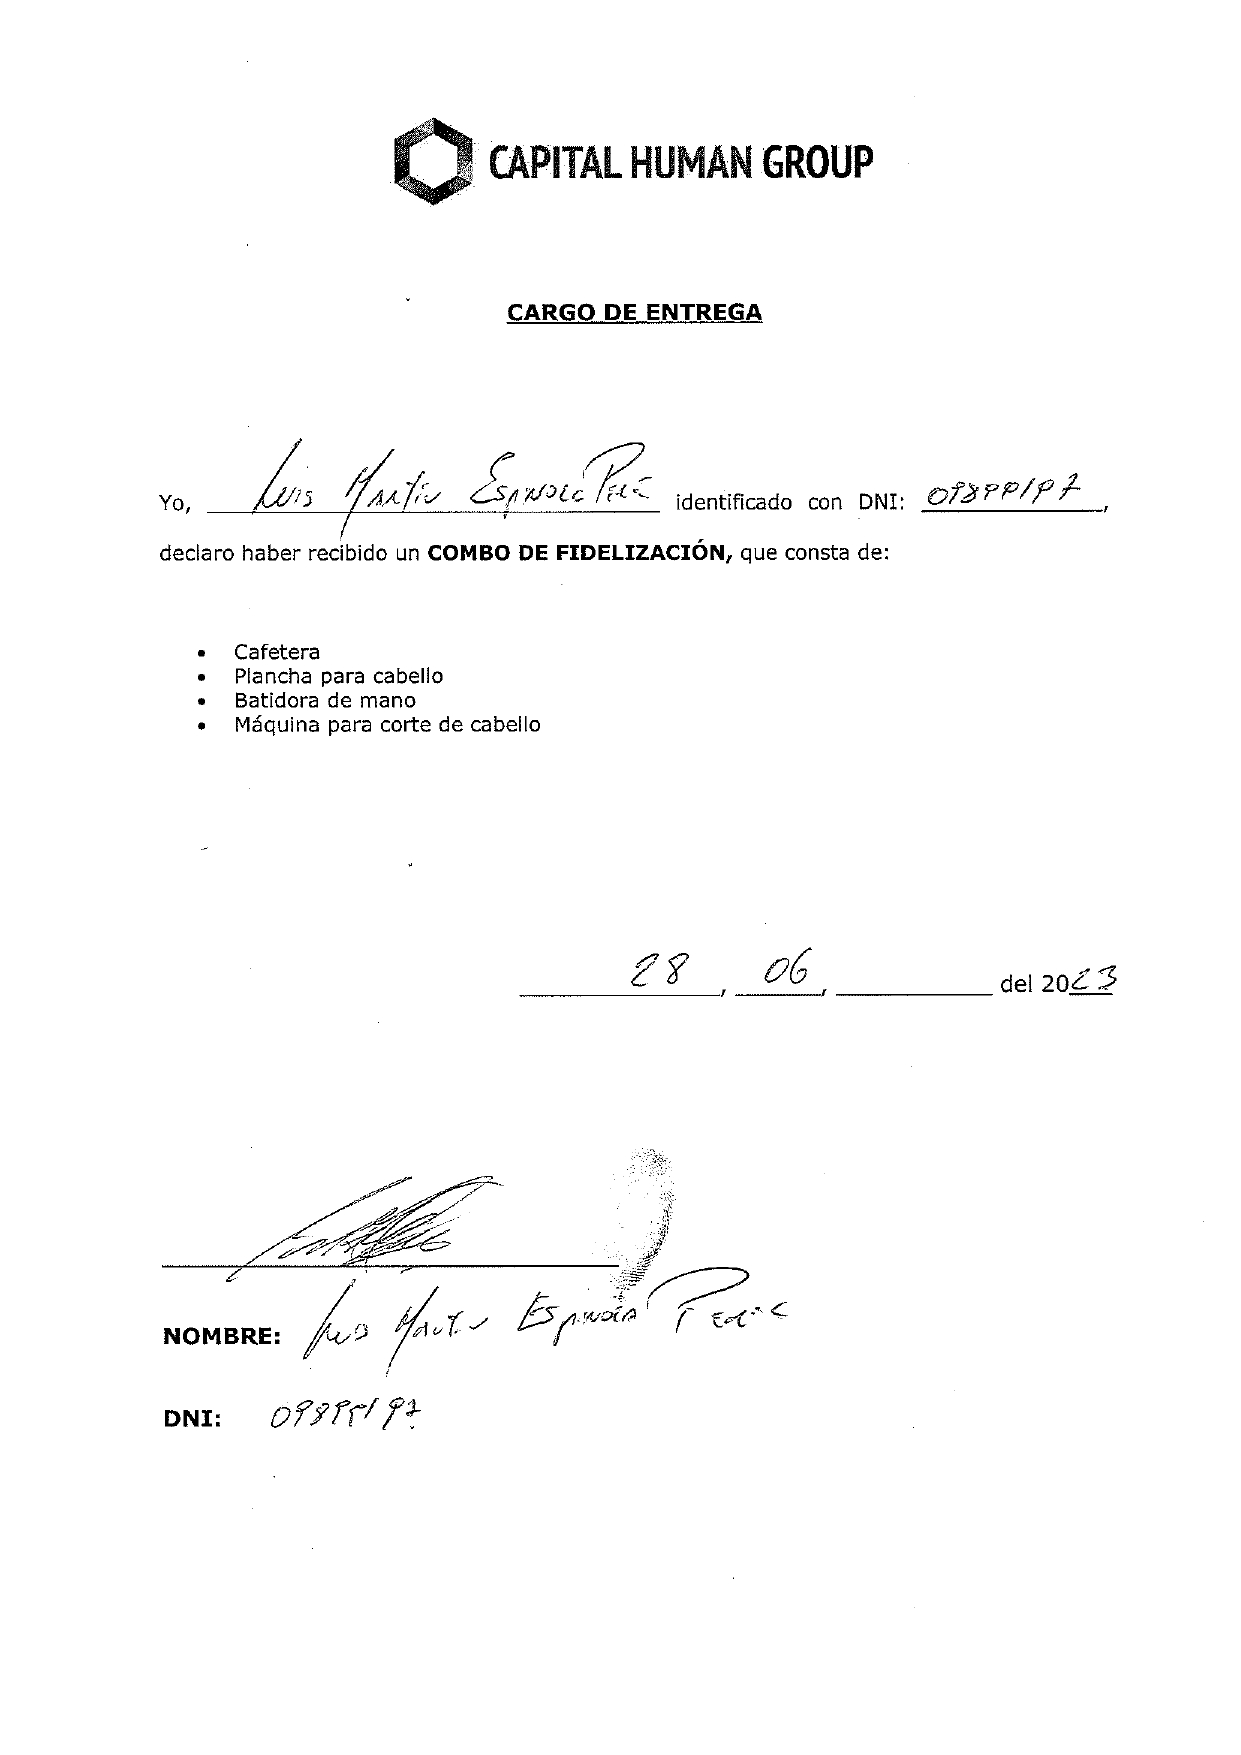 CAPITAL HUMAN GROUP
CARGO DE ENTREGA
Yo, Luis Martin Espinola identificado con DNI: 09899197,
declaro haber recibido un COMBO DE FIDELIZACIÓN, que consta de:
• Cafetera
• Plancha para cabello
• Batidora de mano
• Máquina para corte de cabello
28, 06, del 2023
NOMBRE: Luis Martin Espinola
DNI: 09899197